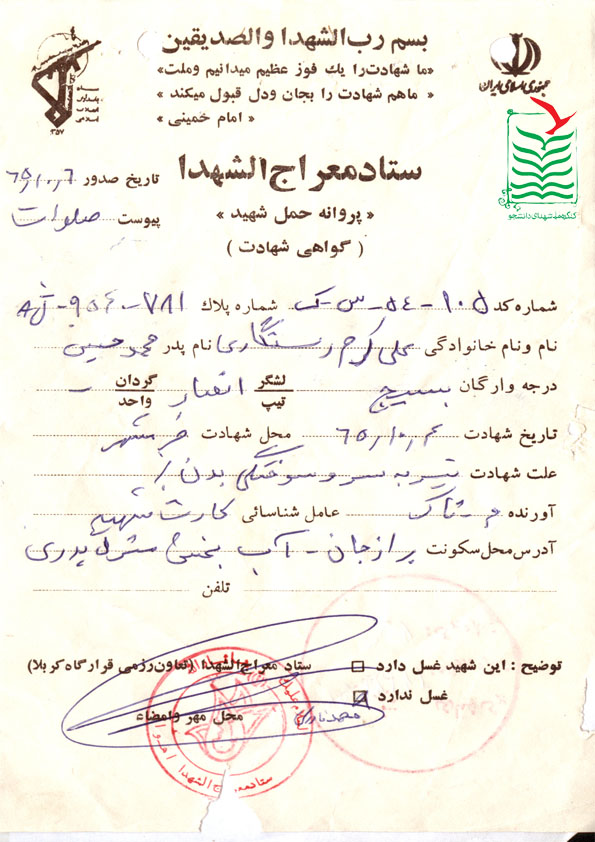 بسم رب الشهدا والصدیقین
«ما شهادت را یک فوز عظیم میدانیم وملت»
« ماهم شهادت را بجان ودل قبول میکند »
« امام خمینی »
سپاه پاسداران انقلاب اسلامی
۱۳۵۷
جمهوری اسلامی ایران
کنگره ملی شهدای دانشجو
ستاد معراج الشهدا
« پروانه حمل شهید »
( گواهی شهادت )
تاریخ صدور ۶۵٫۱۰٫۶
پیوست صلوات
شماره کد ۱۰۵-۵۴-س-ک شماره پلاک ۷۸۱-۹۵۴-
نام ونام خانوادگی علی کرم رستگاری نام پدر محمد حسین
درجه وارگان بسیج لشگر تیپ انصار گردان واحد -
تاریخ شهادت ۶۵٫۱۰٫۴ محل شهادت خرمشهر
علت شهادت تیر به سر و سوختگی بدن
آورنده عامل شناسائی کارت شهید
آدرس محل سکونت برازجان - آب پخش منزل پدری
تلفن
توضیح : این شهید غسل دارد
غسل ندارد
ستاد معراج الشهدا (تعاون رزمی قرارگاه کربلا)
محل مهر وامضاء
ستاد معراج الشهدا